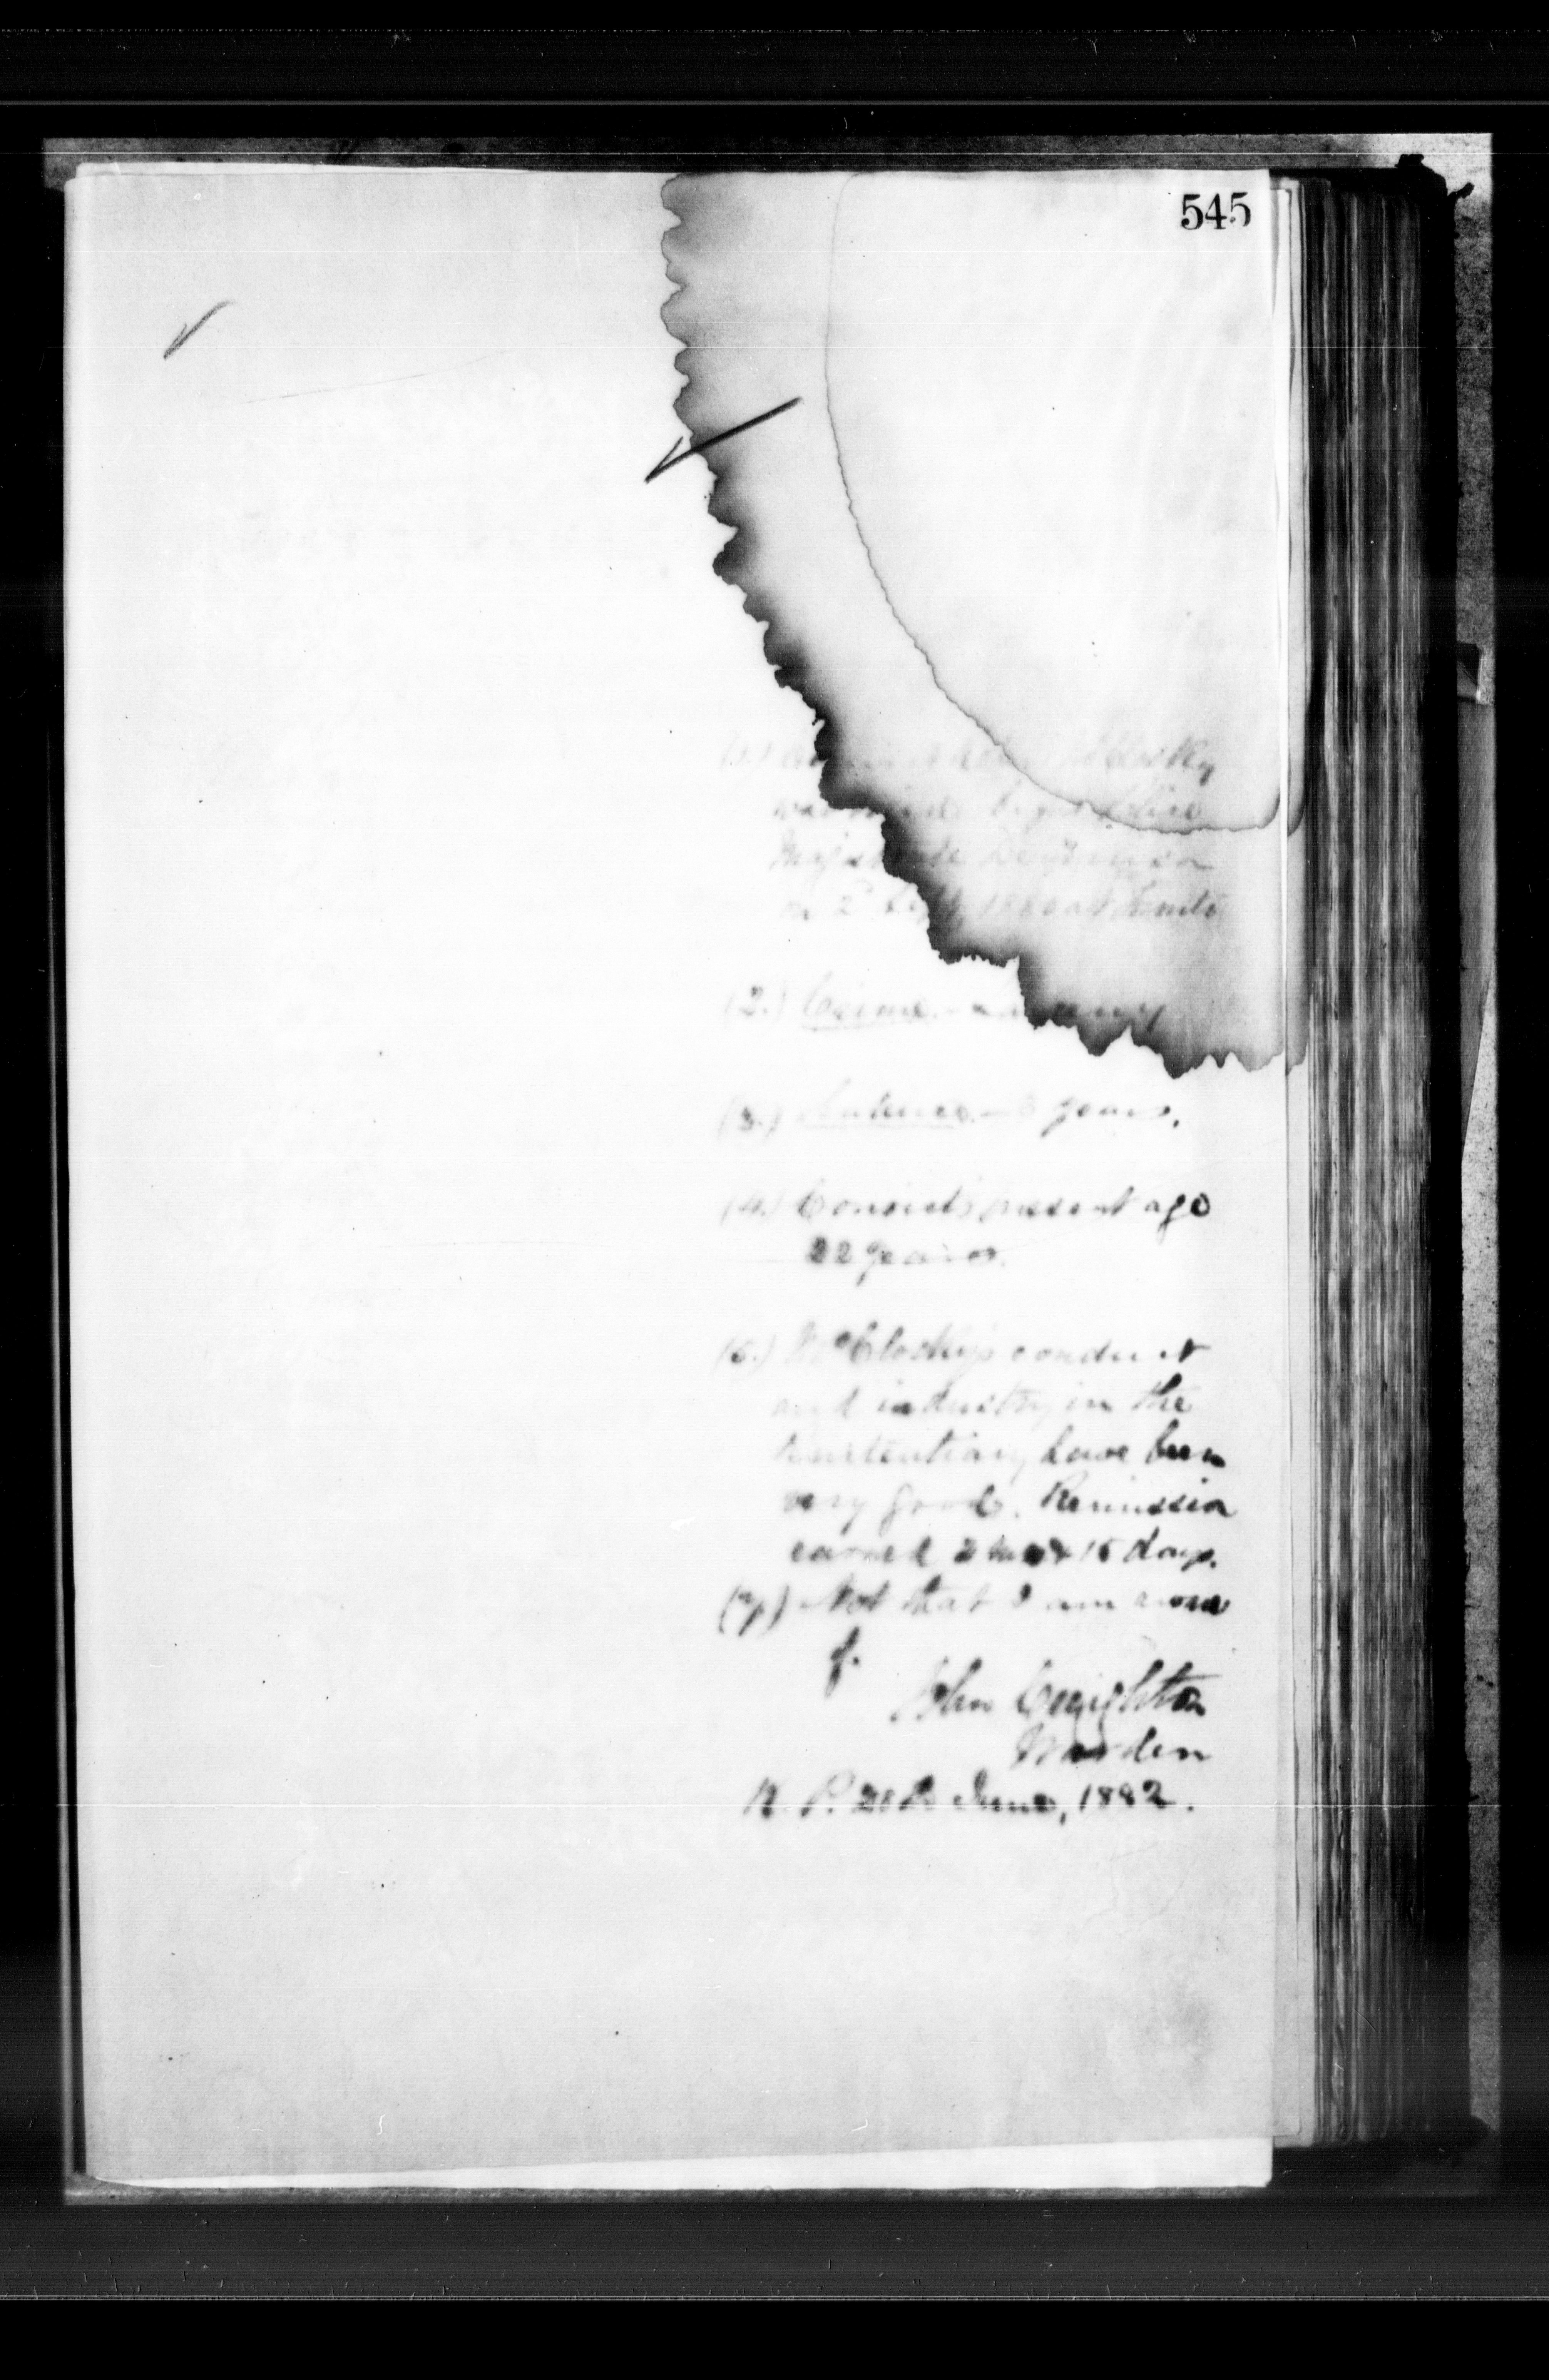 545
(1.)
was by Police
Magistrate Denison
on 2 Sept 1880 at
(2.) Crime. - Larceny
(3.) Sentence. - years.
(4.) Convict's present age
22 years.
(6.) McClosky's conduct
and industry in the
Penitentiary have been
very good. Remission
earned 15 days.
(7) Not that I am aware
of.
John Creighton
Warden
K. P. June, 1882.